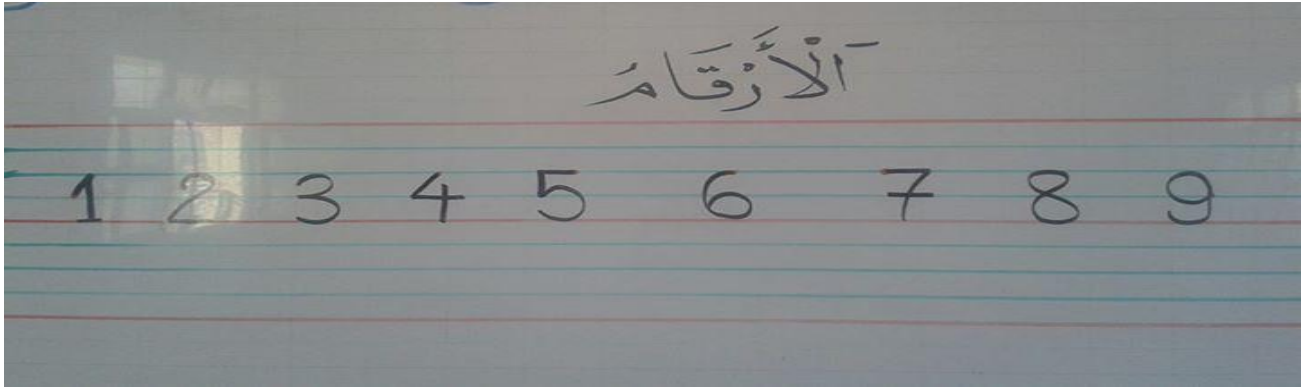 اَلْأَرْقَامُ
1 2 3 4 5 6 7 8 9